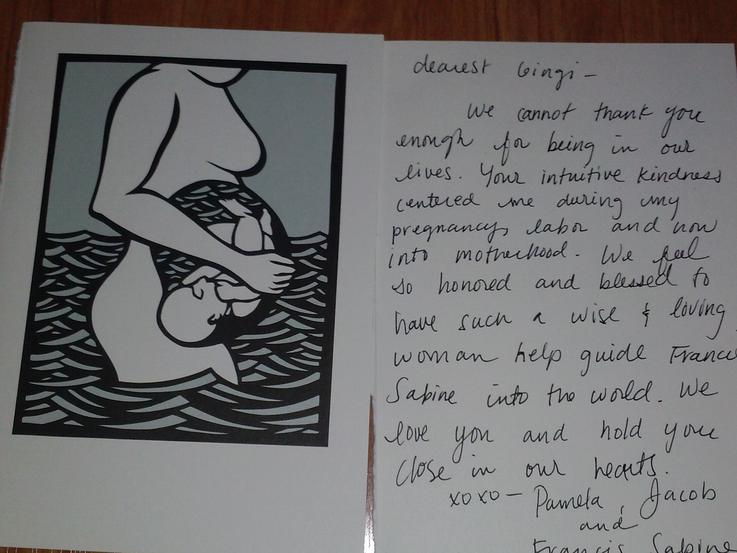 dearest Gingi –
We cannot thank you
enough for being in our
lives. Your intuitive kindness
centered me during my
pregnancy, labor and now
into motherhood. We feel
so honored and blessed to
have such a wise & loving
woman help guide Francis
Sabine into the world. We
love you and hold you
close in our hearts.
xoxo – Pamela, Jacob
and
Francis Sabine